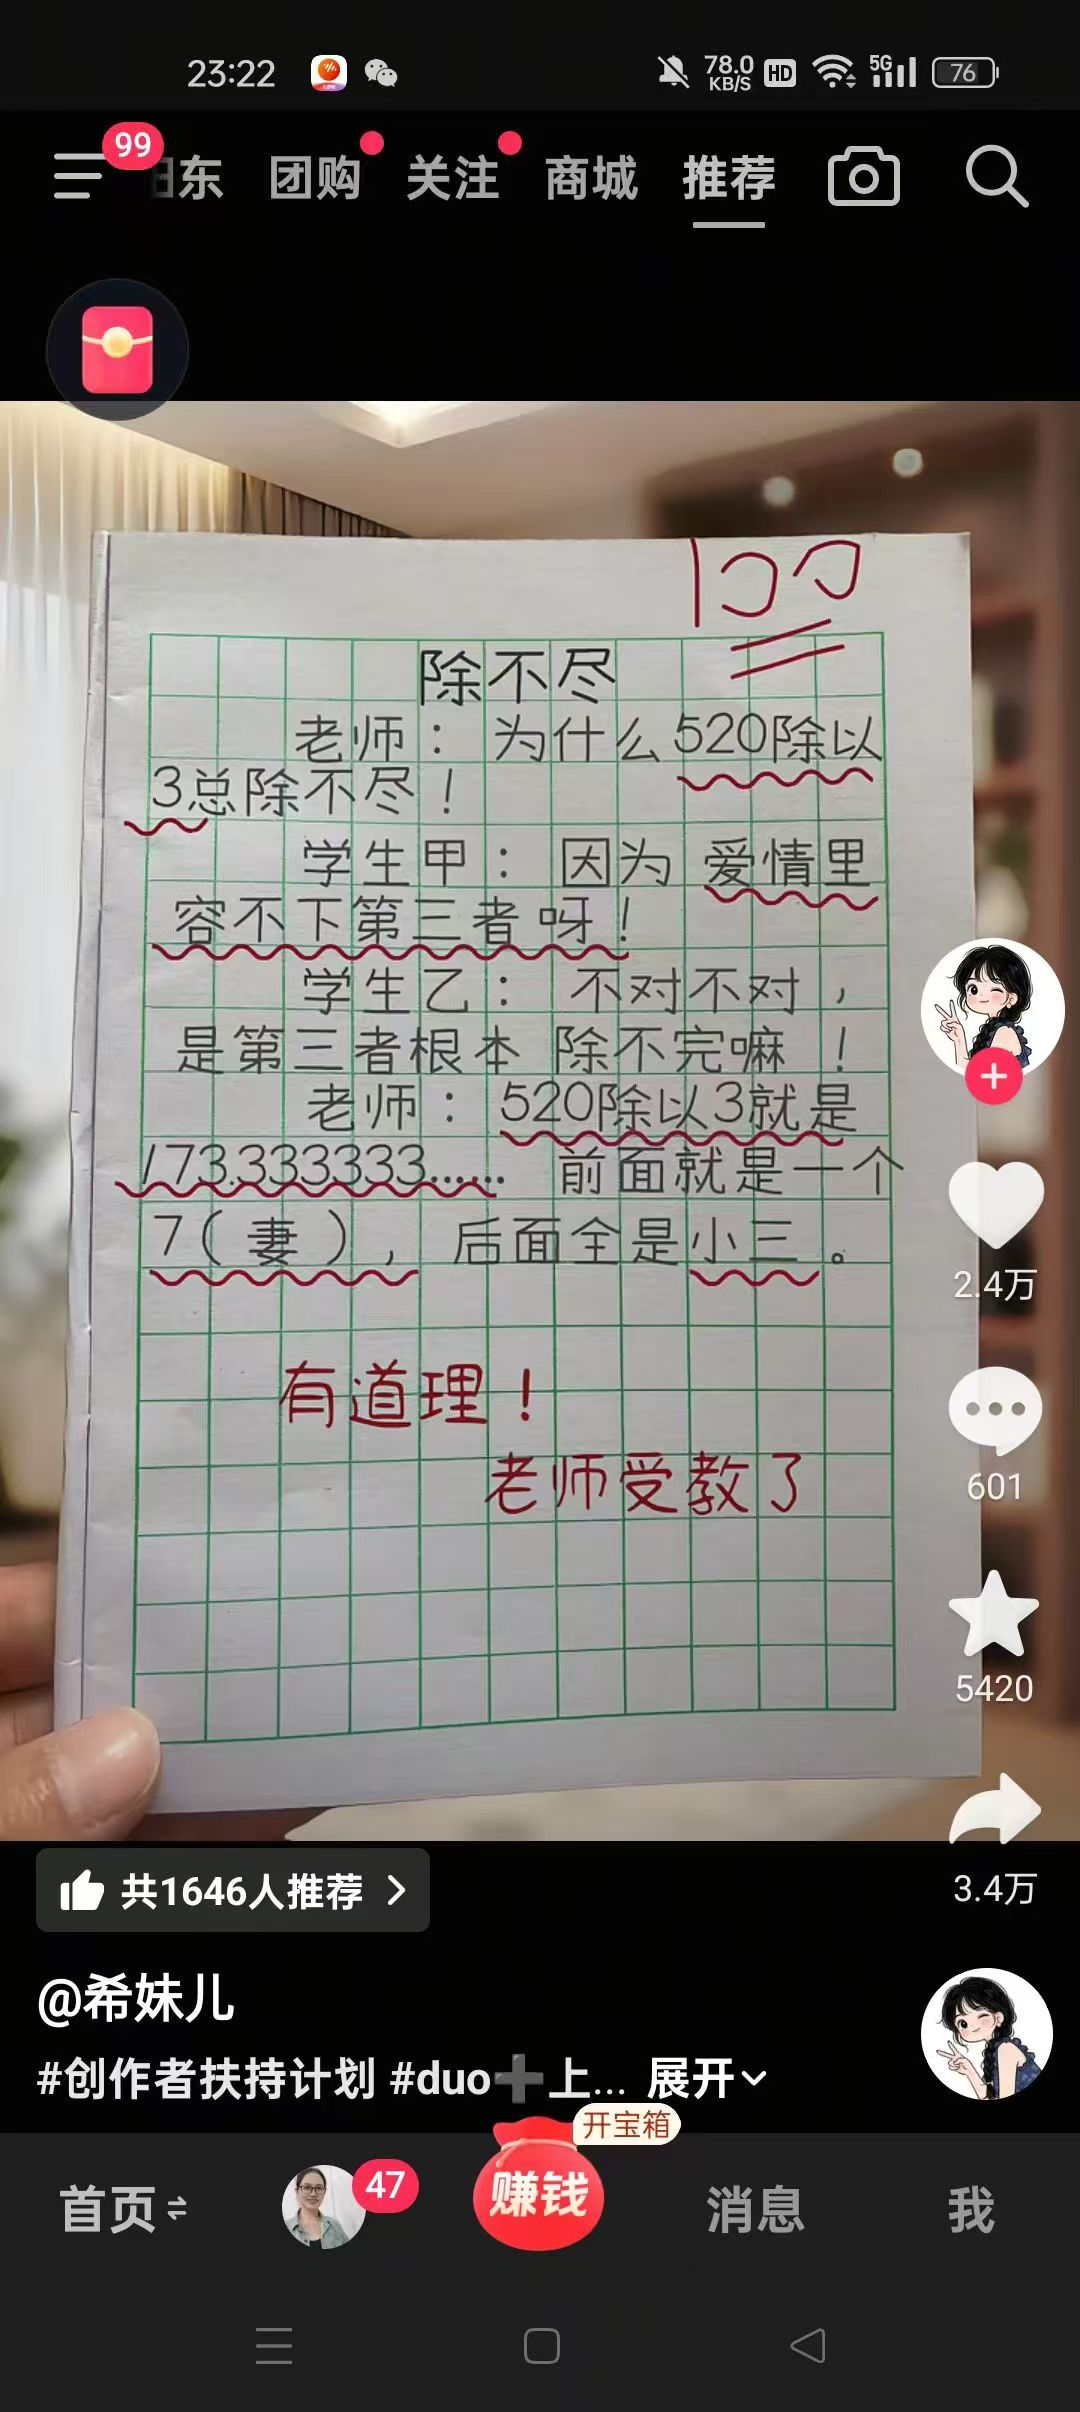 23:22
78.0 KB/S HD 5G 76
99
东 团购 关注 商城 推荐
100
除不尽
老师：为什么520除以
3总除不尽！
学生甲：因为 爱情里
容不下第三者呀！
学生乙：不对不对，
是第三者根本 除不完嘛！
老师：520除以3就是
173.333333...... 前面就是一个
7(妻)，后面全是小三。
有道理！
老师受教了
2.4万
601
5420
3.4万
共1646人推荐
@希妹儿
#创作者扶持计划 #duo➕上... 展开
开宝箱
首页 47 赚钱 消息 我